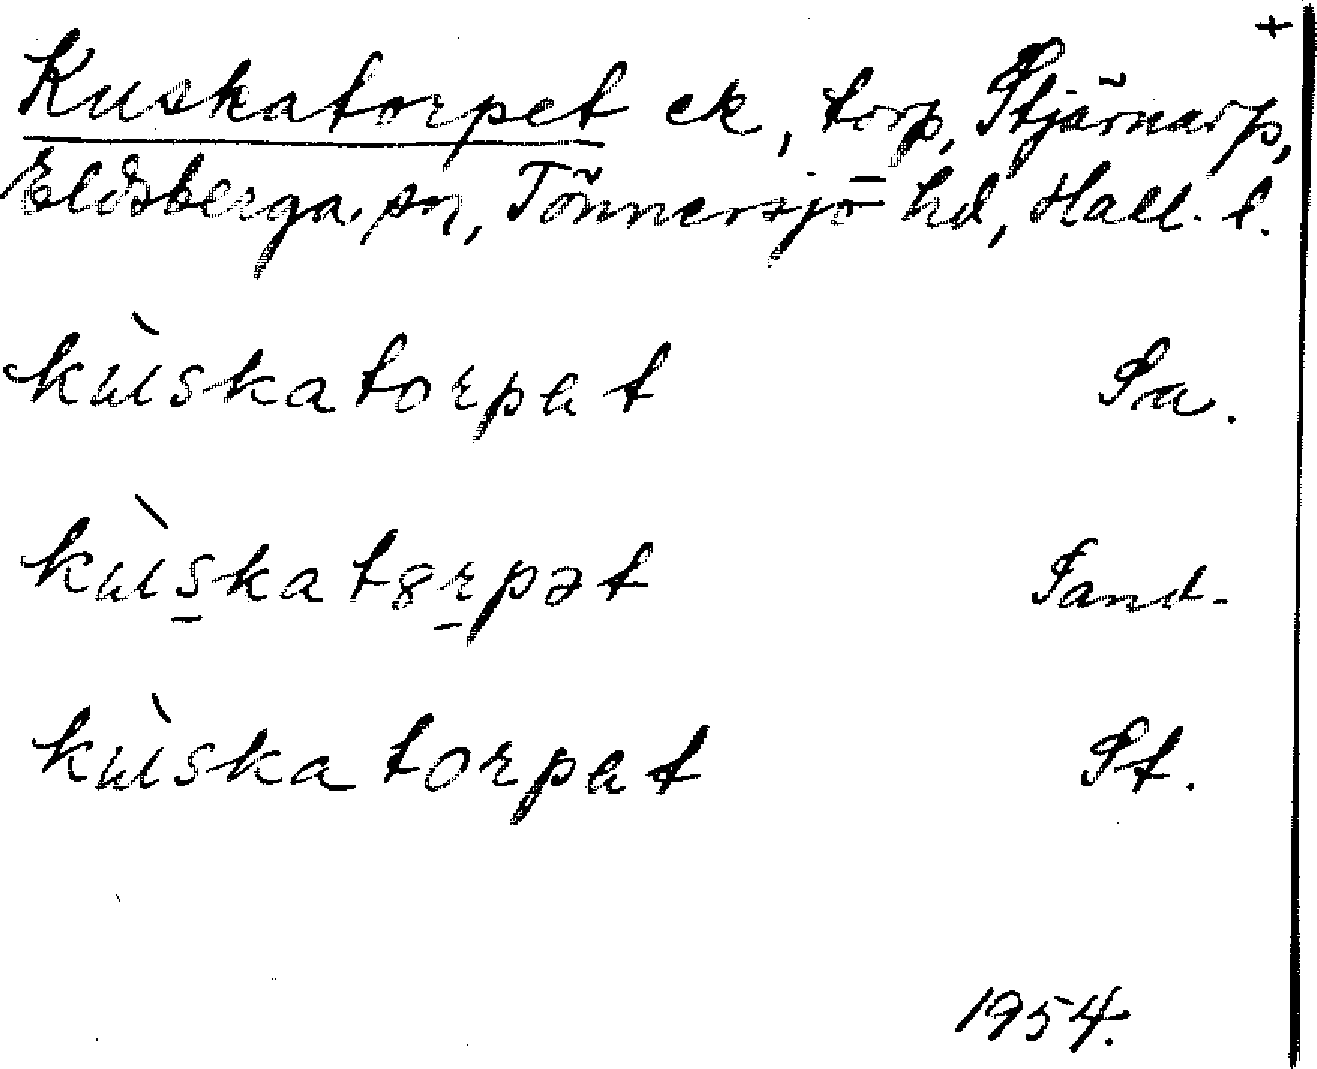 +
Kuskatorpet ek, torp, Stjärnarp,
Eldsberga sn, Tönnersjö hd, Hall. l.
kùskatorpat Sa.
kùs̠katɞr̠pət Sand.
kùskatorpat St.
1954.